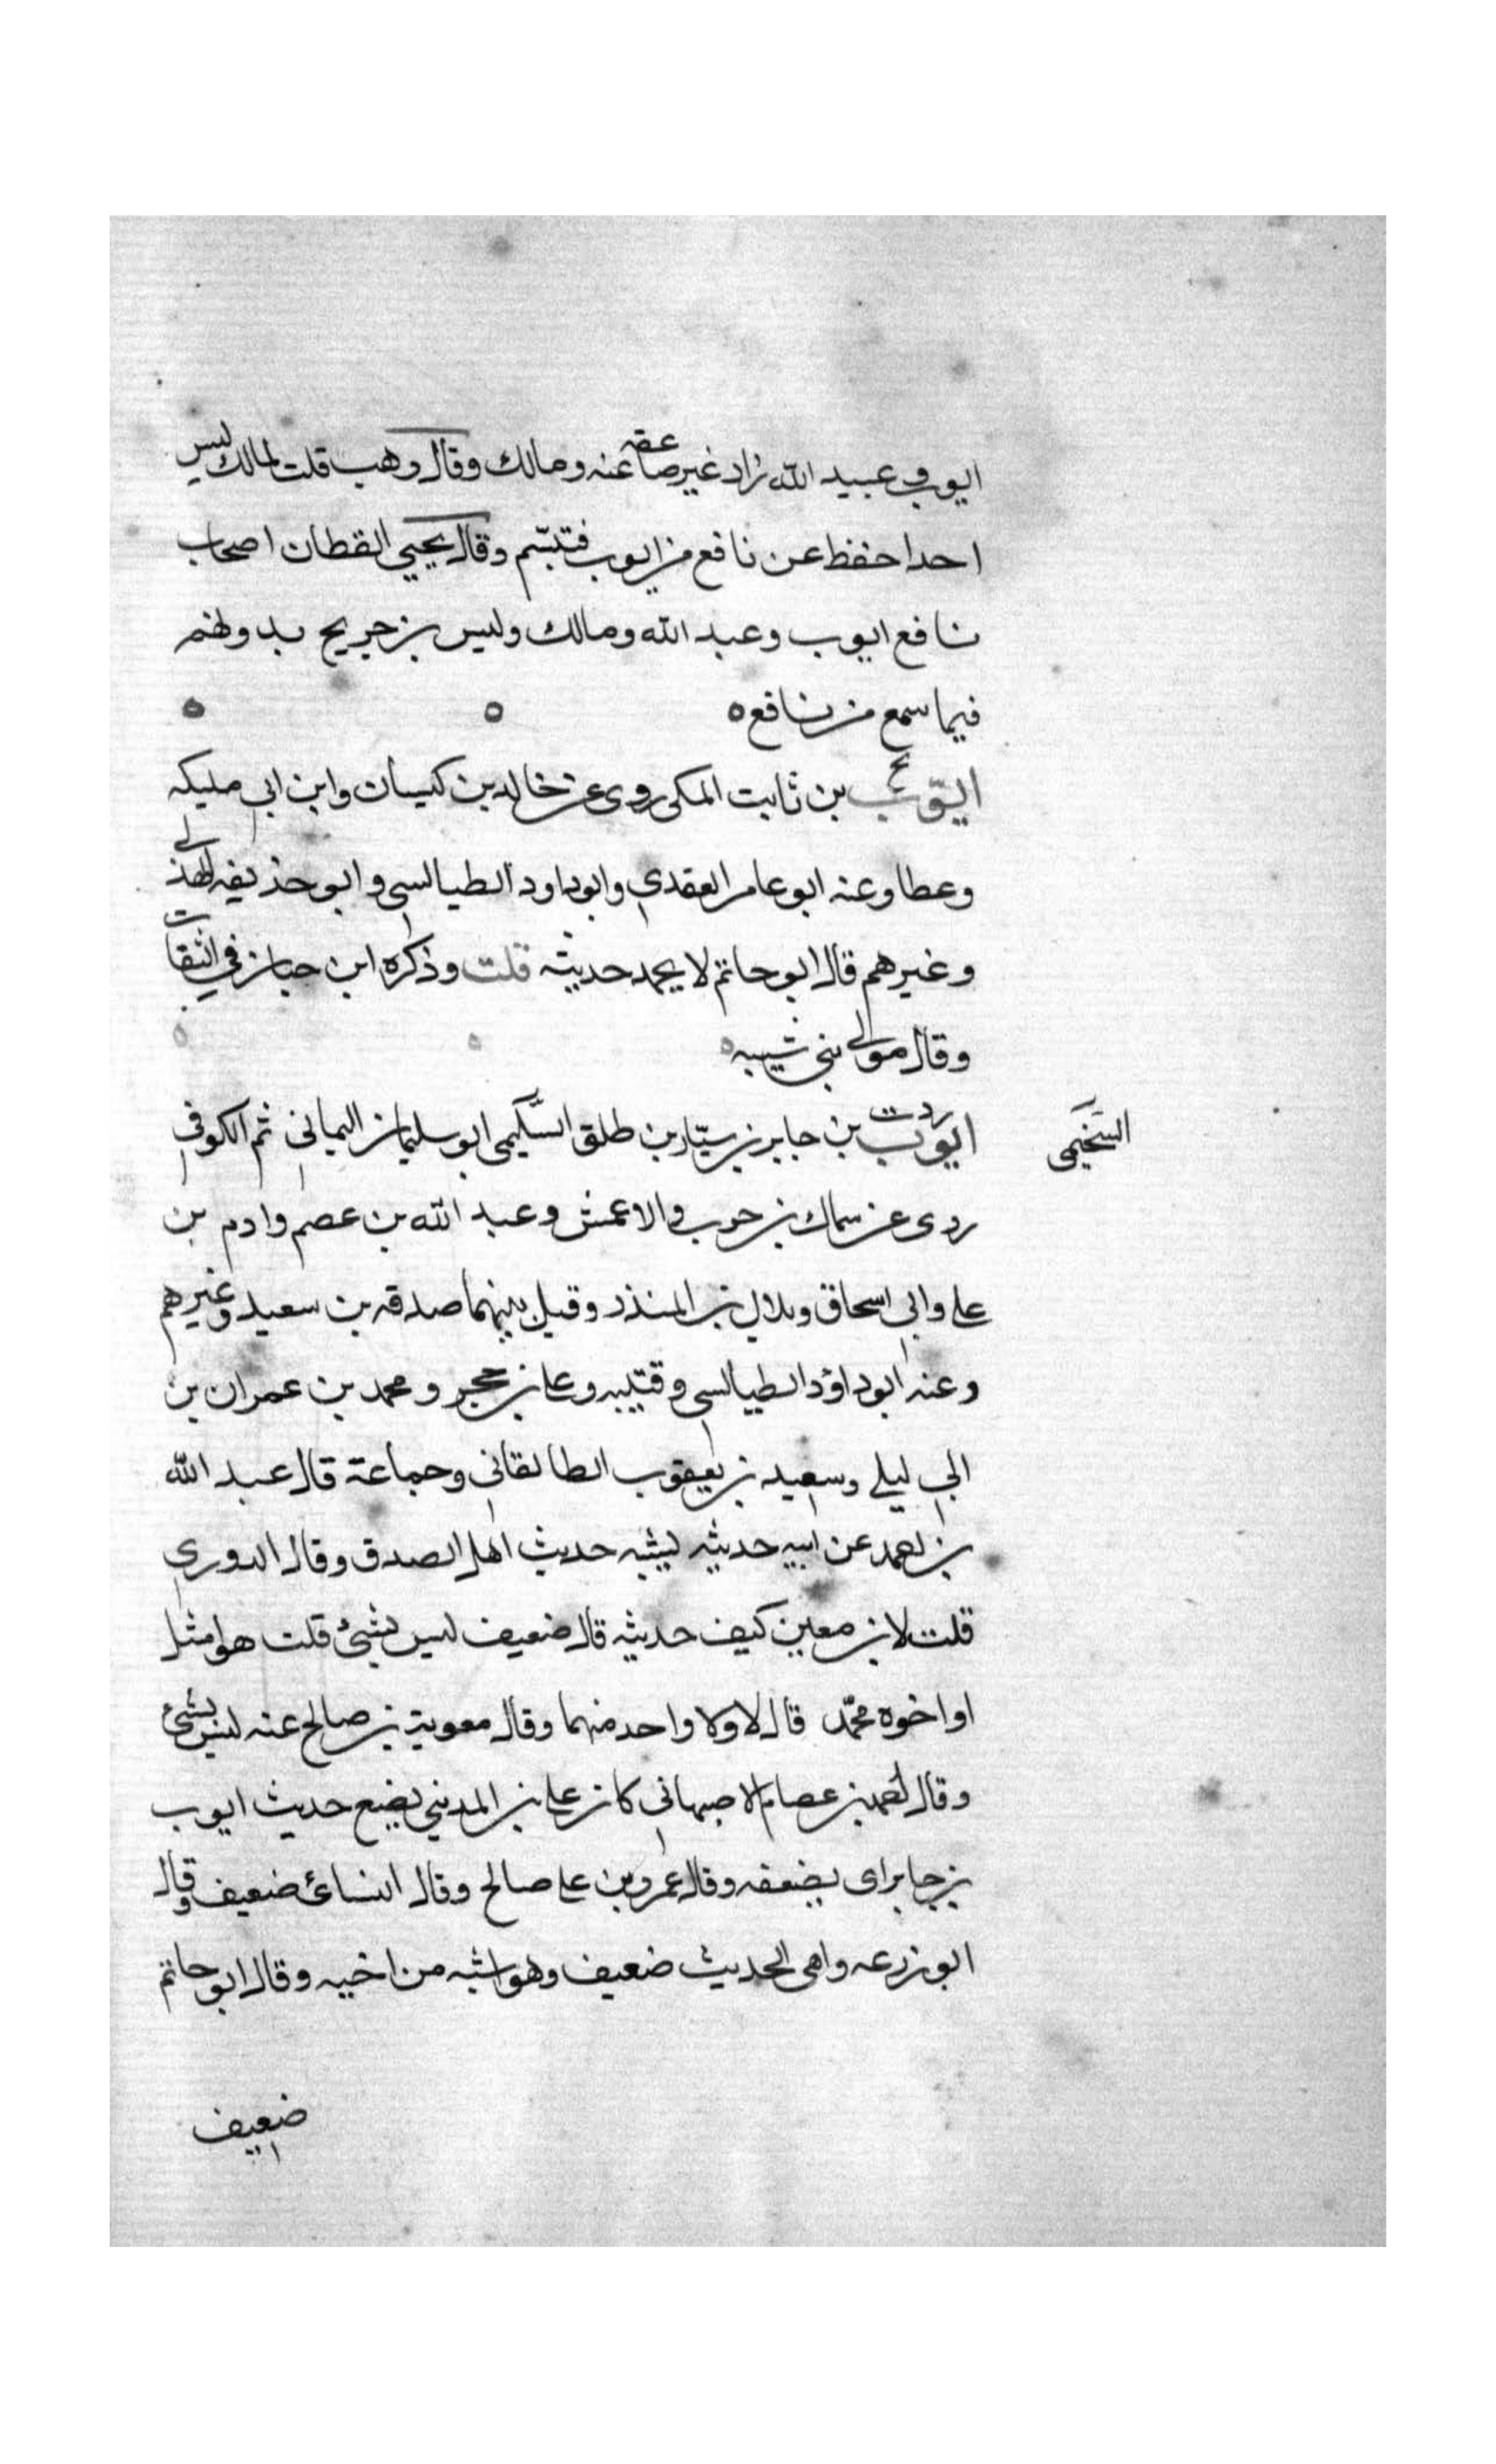 ايوب وعبيد الله زاد غير صاعقه عنه ومالك وقال وهب قلت لمالك ليس
احدا حفظ عن نافع من ايوب فتبسّم وقال يحيى القطان اصحاب
نافع ايوب وعبد الله ومالك وليس بن جريج بدولهم
فيما سمع من نافع ه
ايّوب بن ثابت المكي روى عن خالد بن كيسان وابن ابي مليكه
وعطا وعنه ابو عامر العقدي وابو داود الطيالسي وابو حذيفه الهذلي
وغيرهم قال ابو حاتم لا يحمد حديثه قلت وذكره ابن حبان في الثقات
وقال مولى بني شيبه
ايوب بن جابر بن سيّار بن طلق السّكيمي ابو سليمان اليماني ثم الكوفي
السّحيمي
روى عن سماك بن حرب والاعمش وعبد الله بن عصم وادم بن
علي وابي اسحاق وبلال بن المنذر وقيل بينهما صدقه بن سعيد وغيرهم
وعنه ابو داؤد الطيالسي وقتيبه وعلي بن حجر ومحمد بن عمران بن
ابي ليلى وسعيد بن يعقوب الطالقاني وجماعة قال عبد الله
بن احمد عن ابيه حديثه يشبه حديث اهل الصدق وقال الدوري
قلت لابن معين كيف حديثه قال ضعيف ليس بشئ قلت هو امثل
او اخوه محمّد قال لا ولا واحد منهما وقال معوية بن صالح عنه ليس بشئ
وقال احمد بن عصام الاصبهاني كان علي بن المديني يضع حديث ايوب
بن جابر اى يضعفه وقال عمرو بن علي صالح وقال النسائ ضعيف وقال
ابو زرعه واهى الحديث ضعيف وهو اشبه من اخيه وقال ابو حاتم
ضعيف